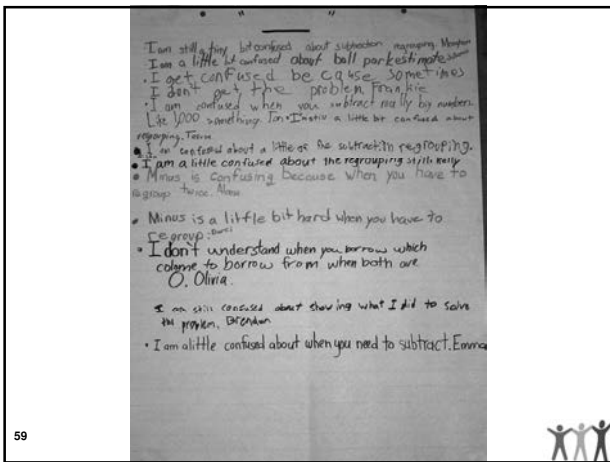 I am still a tiny bit confused about subtraction regrouping.
I am a little bit confused about ball park estimate
• I get confused because sometimes
I don't get the problem. Frankie
• I am confused when you subtract really big numbers.
Like 1,000 something. Ian • I'm still a little bit confused about
regrouping.
• I am confused about a little of the subtraction regrouping.
• I am a little confused about the regrouping still Kelly
• Minus is confusing because when you have to
regroup twice.
• Minus is a little bit hard when you have to
regroup.
• I don't understand when you borrow which
colome to borrow from when both are
O. Olivia.
I am still confused about showing what I did to solve
the problem. Brendan
• I am alittle confused about when you need to subtract. Emma
59